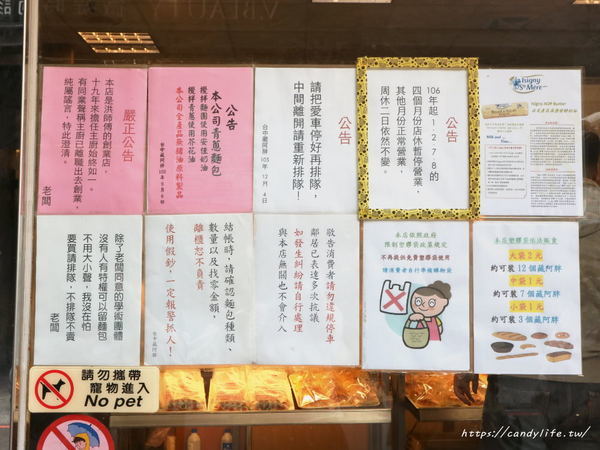 嚴正公告
本店是洪師傅的創業店，
十九年來擔任主廚始終如一。
有同業聲稱主廚已離職出去創業，
純屬謠言，特此澄清。
老闆
公告
本公司青蔥麵包
攪拌麵團使用安佳奶油
攪拌青蔥使用芥花油
本公司全產品無豬油原料製品
公告
請把愛車停好再排隊，
中間離開請重新排隊！
台中藏阿胖
105年12月4日
公告
106年起1、2、7、8的
四個月份店休暫停營業，
其他月份正常營業，
周休二日依然不變。
Isigny
Ste Mère
除了老闆同意的學術團體
沒有人有特權可以留麵包
不用大小聲，我沒在怕
要買請排隊，不排隊不賣
老闆
結帳時，請確認麵包種類、
數量以及找零金額，
離櫃恕不負責
使用假鈔，一定報警抓人！
敬告消費者請勿違規停車
鄰居已表達多次抗議
如發生糾紛請自行處理
與本店無關也不會介入
本店依照政府
限制塑膠袋政策規定
不再提供免費塑膠袋使用
請消費者自行準備購物袋
本店塑膠袋依法販賣
大袋2元
約可裝12個藏阿胖
中袋1元
約可裝7個藏阿胖
小袋1元
約可裝3個藏阿胖
請勿攜帶
寵物進入
No pet
https://candylife.tw/